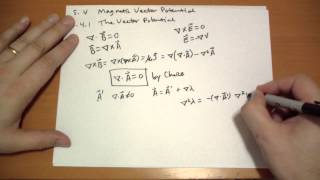 5.4 Magnetic Vector Potential
.4.1 The Vector Potential
∇·B⃗=0 ∇×E⃗=0
B⃗=∇×A⃗ E⃗=-∇V
∇×B⃗=∇×(∇×A⃗)=μ₀J⃗=∇(∇·A⃗)-∇²A⃗
∇·A⃗=0 by Choice
A⃗' ∇·A⃗'≠0 A⃗=A⃗'+∇λ
∇²λ=-(∇·A⃗') ∇²